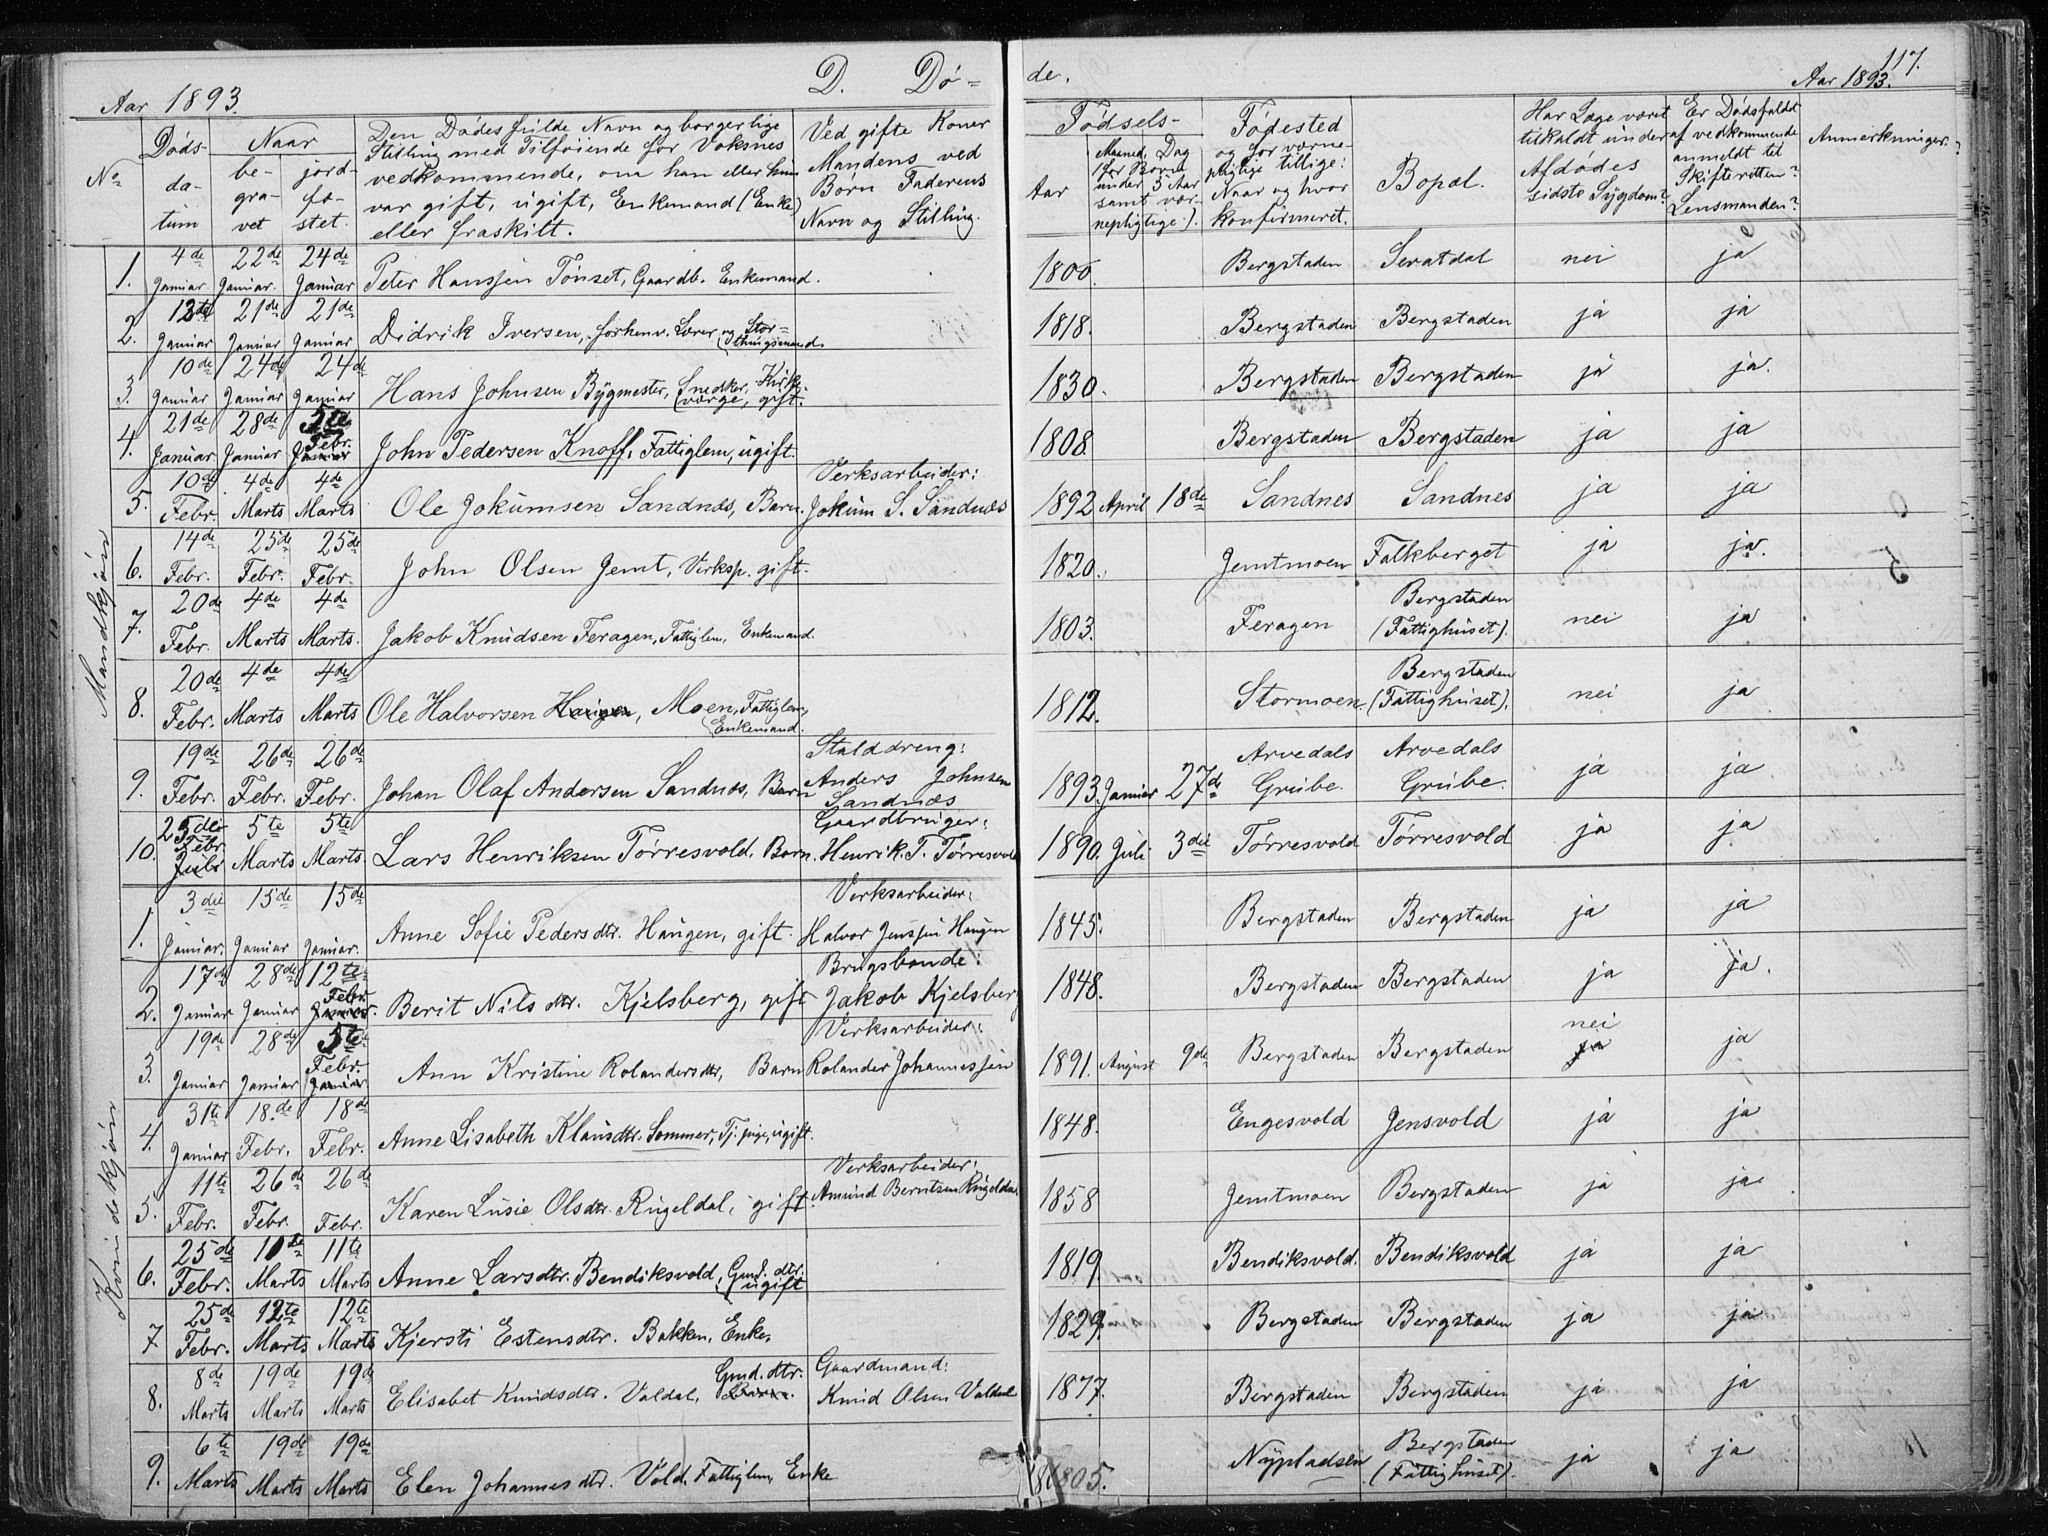 Aar 1893. D. Dø-
de. Aar 1893. 117.
No Døds-datum Naar begravet jordfæstet. Den Dødes fulde Navn og borgerlige Stilling med Tilføiende for Voksnes vedkommende, om han eller hun var gift, ugift, Enkemand (Enke) eller fraskilt. Ved gifte Koner Mandens ved Børn Faderens Navn og Stilling.
Fødsels- Aar Maaned, Dag (for Børn under 3 Aar samt værnepligtige). Fødested og for værnepligtige tillige: Naar og hvor konfirmeret. Bopæl. Har Læge været tilkaldt under Afdødes sidste Sygdom? Er Dødsfaldet af vedkommende anmeldt til Skifteretten? Lensmanden? Anmerkninger.
Mandkjøn
1. 4de Januar 22de Januar. 24de Januar Peter Hanssen Tønset, Gaardb. Enkemand. 1800. Bergstaden nei ja
2. 13de Januar 21de Januar 21de Januar Didrik Iversen, forhenv. Lærer og Storthingsmand. 1818. Bergstaden Bergstaden ja ja
3. 10de Januar 24de Januar 24de Januar Hans Johnsen Bygmester, Snedker, Kirkeværge, gift. 1830. Bergstaden Bergstaden ja ja.
4. 21de Januar 28de Januar 5te Febr. Januar John Pedersen Knoff, Fattiglem, ugift. 1808. Bergstaden Bergstaden ja ja
5. 10de Febr. 4de Marts 4de Marts Ole Jokumsen Sandnæs, Barn. Verksarbeider: Jokum S. Sandnæs 1892 April 18de Sandnes Sandnes ja ja
6. 14de Febr. 25de Febr. 25de Febr. John Olsen Jemt, Verksp. gift. 1820. Jemtmoen Falkberget ja ja.
7. 20de Febr. 4de Marts 4de Marts. Jakob Knudsen Feragen, Fattiglem, Enkemand. 1803. Feragen Bergstaden (Fattighuset). nei ja
8. 20de Febr. 4de Marts 4de Marts Ole Halvorsen Haugen, Moen, Fattiglem, Enkemand. 1812. Stormoen. Bergstaden (Fattighuset). nei ja
9. 19de Febr. 26de Febr. 26de Febr. Johan Olaf Andersen Sandnæs, Barn Stalddreng: Anders Johnsen Sandnæs 1893. Januar 27de Arvedals Grube. Arvedals Grube. ja ja
10. 25de Febr. Juli 5te Marts 5te Marts Lars Henriksen Tørresvold, Barn. Gaardbruger: Henrik T. Tørresvold 1890. Juli 3die Tørresvold Tørresvold ja ja
Kvindekjøn
1. 3die Januar. 15de Januar 15de Januar. Anne Sofie Pedersdtr. Haugen, gift. Verksarbeider: Halvor Jenssen Haugen 1845. Bergstaden Bergstaden ja ja
2. 17de Januar 28de Januar 12te Febr. Januar. Berit Nilsdtr. Kjelsberg, gift Brugsbonde: Jakob Kjelsberg 1848. Bergstaden Bergstaden ja ja.
3. 19de Januar 28de Januar 5te Febr. Januar Ann Kristine Rolandersdtr, Barn Verksarbeider: Rolander Johannessen 1891. August 9de Bergstaden Bergstaden nei ja ja
4. 31te Januar 18de Febr. 18de Febr. Anne Lisabeth Klausdtr. Sommer, Tj. pige, ugift. 1848. Engesvold Jensvold ja ja
5. 11te Febr. 26de Febr. 26de Febr. Karen Lusie Olsdtr. Rugeldal, gift. Verksarbeider: Amund Berntsen Rugeldal 1858 Jemtmoen Bergstaden ja ja
6. 25de Febr. Marts 11te Marts Anne Larsdtr. Bendiksvold, Gmd. dtr. ugift 1819. Bendiksvold. Bendiksvold ja ja
7 25de Febr. 12te Marts 12te Marts Kjersti Estensdtr. Bakken, Enke. 1829. Bergstaden Bergstaden ja ja
8. 8de Marts 19de Marts 19de Marts Elisabet Knudsdtr. Valdal, Gmd. dtr. Gaardmand: Knud Olsen Valdal 1877. Bergstaden Bergstaden ja ja
9. 6te Marts 19de Marts 19de Marts Elen Johannesdtr. Vold, Fattiglem, Enke 1805. Nypladsen Bergstaden (Fattighuset). ja ja